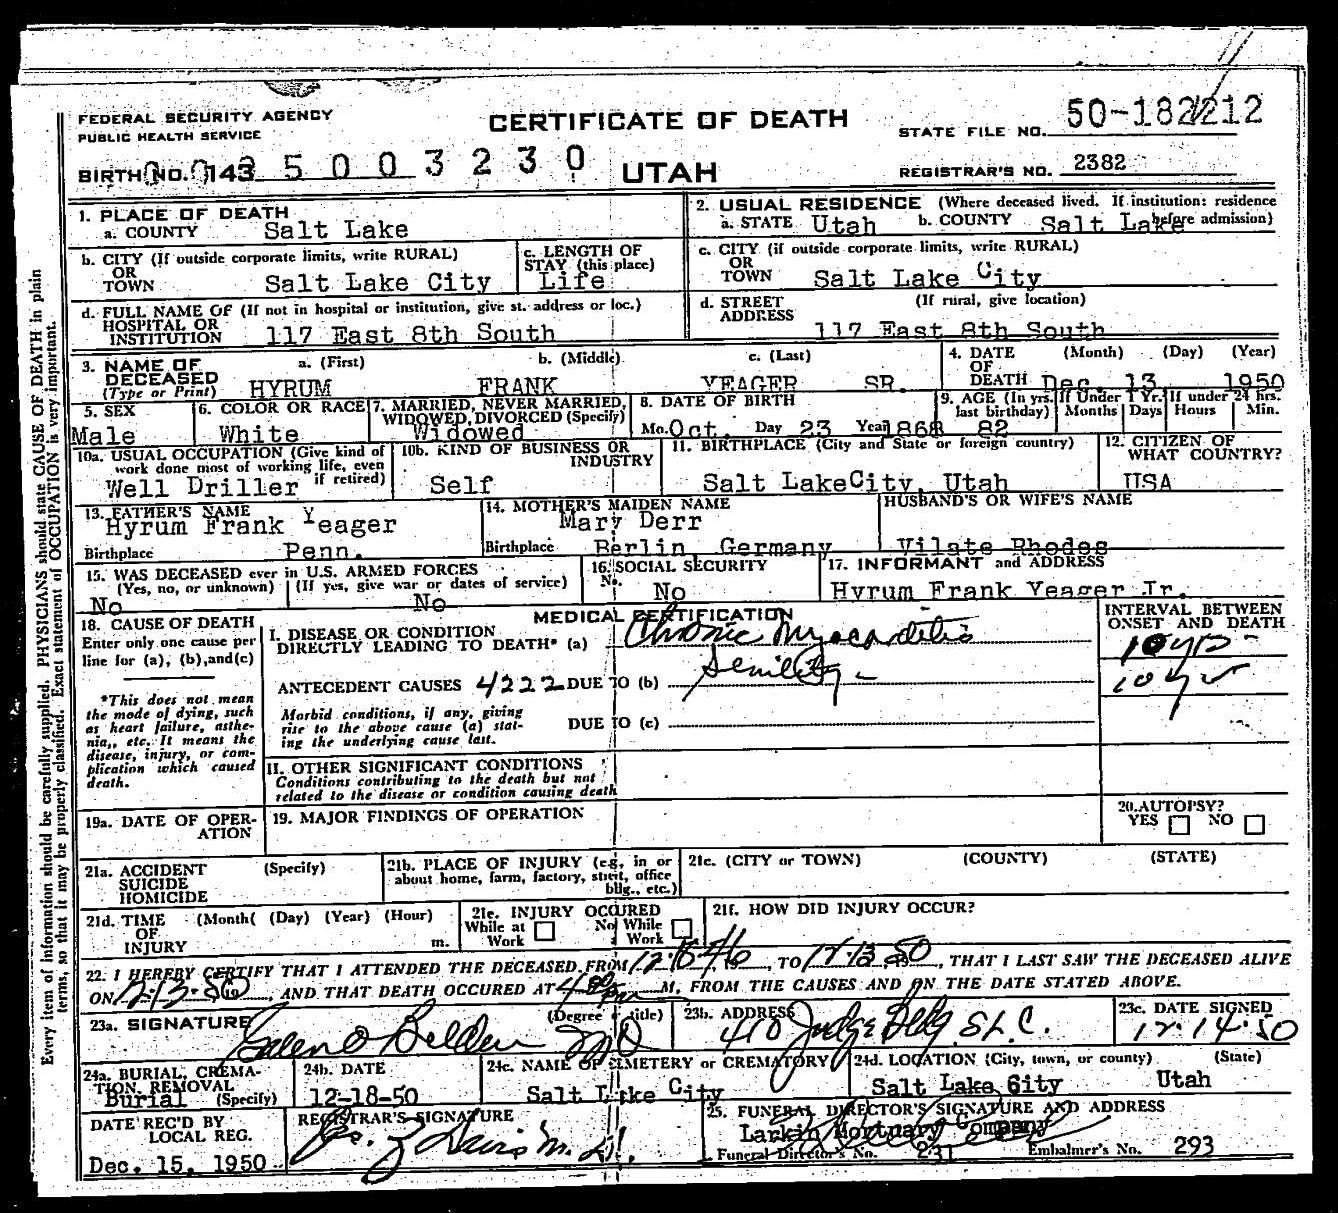 FEDERAL SECURITY AGENCY
PUBLIC HEALTH SERVICE
CERTIFICATE OF DEATH
STATE FILE NO. 50-182212
BIRTH NO. 143 5003230
UTAH
REGISTRAR'S NO. 2382
1. PLACE OF DEATH
a. COUNTY Salt Lake
2. USUAL RESIDENCE (Where deceased lived. If institution: residence before admission)
a. STATE Utah b. COUNTY Salt Lake
b. CITY (If outside corporate limits, write RURAL)
OR
TOWN Salt Lake City
c. LENGTH OF
STAY (this place)
Life
c. CITY (if outside corporate limits, write RURAL)
OR
TOWN Salt Lake City
d. FULL NAME OF (If not in hospital or institution, give st. address or loc.)
HOSPITAL OR
INSTITUTION 117 East 8th South
d. STREET (If rural, give location)
ADDRESS 117 East 8th South
3. NAME OF
DECEASED
(Type or Print)
a. (First) b. (Middle) c. (Last)
HYRUM FRANK YEAGER SR.
4. DATE (Month) (Day) (Year)
OF
DEATH Dec. 13, 1950
5. SEX
Male
6. COLOR OR RACE
White
7. MARRIED, NEVER MARRIED,
WIDOWED, DIVORCED (Specify)
Widowed
8. DATE OF BIRTH
Mo. Oct. Day 23 Year 1868
9. AGE (In yrs. last birthday) 82
If Under 1 Yr. Months Days
If under 24 hrs. Hours Min.
10a. USUAL OCCUPATION (Give kind of
work done most of working life, even
if retired)
Well Driller
10b. KIND OF BUSINESS OR
INDUSTRY
Self
11. BIRTHPLACE (City and State or foreign country)
Salt LakeCity, Utah
12. CITIZEN OF
WHAT COUNTRY?
USA
13. FATHER'S NAME
Hyrum Frank Yeager
Birthplace Penn.
14. MOTHER'S MAIDEN NAME
Mary Derr
Birthplace Berlin, Germany
HUSBAND'S OR WIFE'S NAME
Vilate Rhodes
15. WAS DECEASED ever in U.S. ARMED FORCES
(Yes, no, or unknown) (If yes, give war or dates of service)
No No
16. SOCIAL SECURITY
No.
No
17. INFORMANT and ADDRESS
Hyrum Frank Yeager Jr.
18. CAUSE OF DEATH
Enter only one cause per
line for (a), (b), and (c)
*This does not mean
the mode of dying, such
as heart failure, asthe-
nia,, etc. It means the
disease, injury, or com-
plication which caused
death.
MEDICAL CERTIFICATION
INTERVAL BETWEEN
ONSET AND DEATH
I. DISEASE OR CONDITION
DIRECTLY LEADING TO DEATH* (a) Chronic Myocarditis 10 yrs
ANTECEDENT CAUSES 4222 DUE TO (b) Senility 10 yrs
Morbid conditions, if any, giving
rise to the above cause (a) stat-
ing the underlying cause last.
DUE TO (c)
II. OTHER SIGNIFICANT CONDITIONS
Conditions contributing to the death but not
related to the disease or condition causing death
19a. DATE OF OPER-
ATION
19. MAJOR FINDINGS OF OPERATION
20. AUTOPSY?
YES NO
21a. ACCIDENT (Specify)
SUICIDE
HOMICIDE
21b. PLACE OF INJURY (e.g., in or
about home, farm, factory, street, office
bldg., etc.)
21c. (CITY or TOWN) (COUNTY) (STATE)
21d. TIME (Month( (Day) (Year) (Hour)
OF
INJURY m.
21e. INJURY OCCURED
While at Work Not While Work
21f. HOW DID INJURY OCCUR?
22. I HEREBY CERTIFY THAT I ATTENDED THE DECEASED FROM 12-16-46, TO 12-13-50, THAT I LAST SAW THE DECEASED ALIVE
ON 12-13-50, AND THAT DEATH OCCURED AT 4:00 pm M, FROM THE CAUSES AND ON THE DATE STATED ABOVE.
23a. SIGNATURE (Degree or title)
Galen O Belden MD
23b. ADDRESS
410 Judge Bldg. S.L.C.
23c. DATE SIGNED
12-14-50
24a. BURIAL, CREMA-
TION, REMOVAL
(Specify)
Burial
24b. DATE
12-18-50
24c. NAME OF CEMETERY or CREMATORY
Salt Lake City
24d. LOCATION (City, town, or county) (State)
Salt Lake City Utah
DATE REC'D BY
LOCAL REG.
Dec. 15, 1950
REGISTRAR'S SIGNATURE
25. FUNERAL DIRECTOR'S SIGNATURE AND ADDRESS
Larkin Mortuary Company
Funeral Director's No. 231 Embalmer's No. 293
Every item of information should be carefully supplied. PHYSICIANS should state CAUSE OF DEATH in plain
terms, so that it may be properly classified. Exact statement of OCCUPATION is very important.